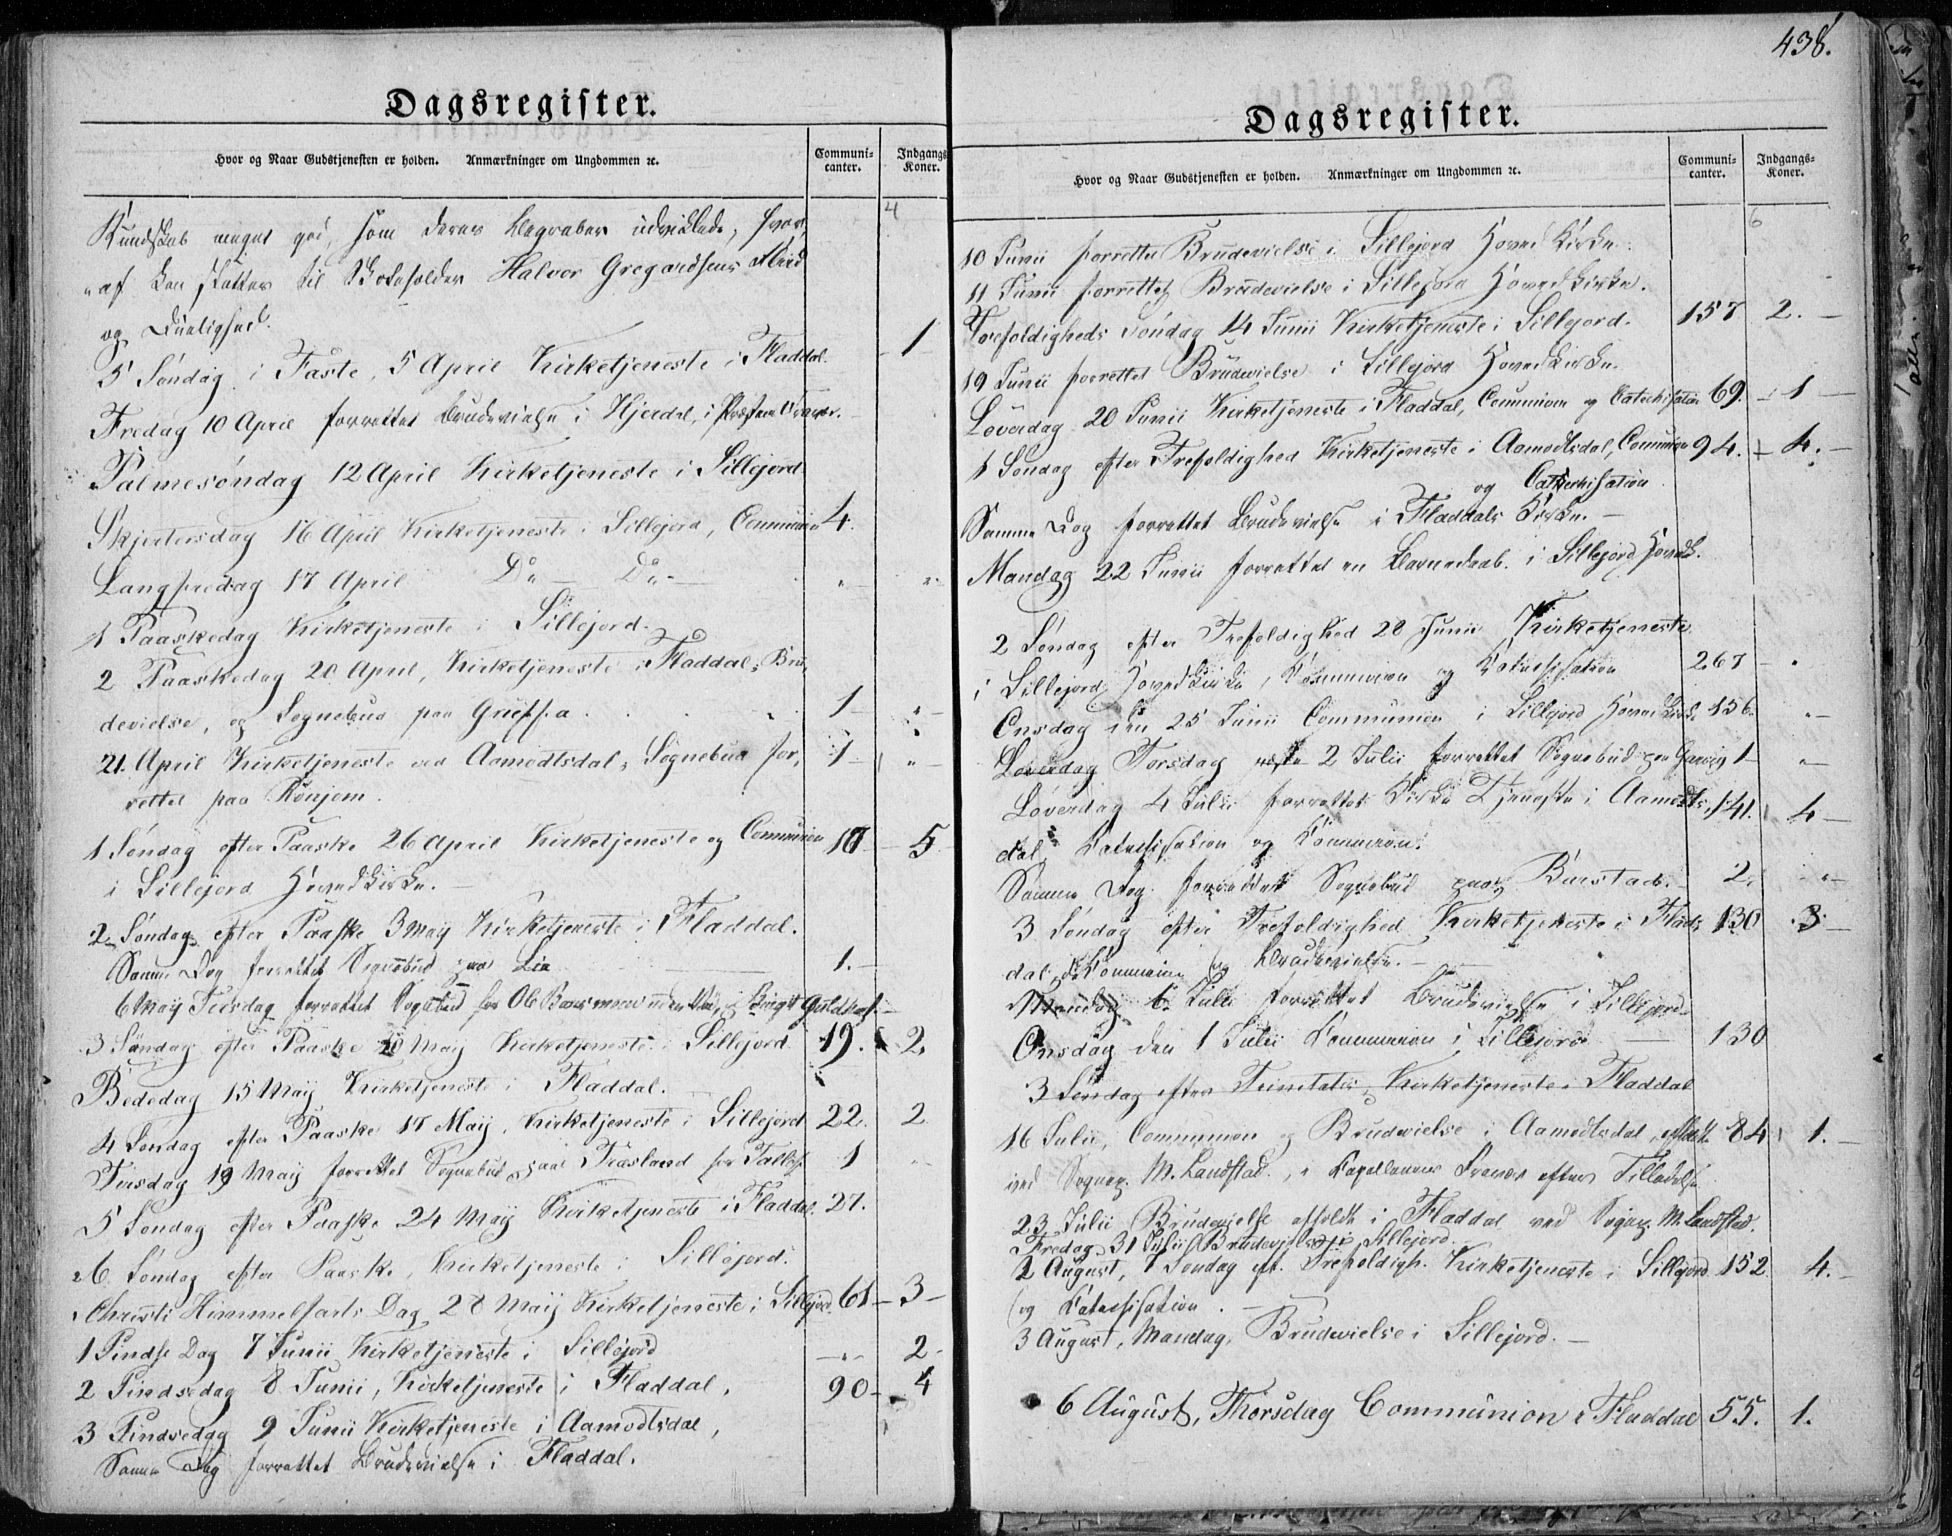 Dagsregister.
Hvor og Naar Gudstjenesten er holden. Anmærkninger om Ungdommen ec.
Communi-
canter.
Indgangs
Koner.
4
Kundskab meget god, som deres Begreber udviklede, hvor,
af kan sluttes til Skoleholder Halvor Gregardsens Flid
og Duelighed.
5 Søndag i Faste, 5 April Kirketjeneste i Fladdal. 1
Fredag 10 April forrettet Brudevielse i Hjerdal, i Præstens
Palmesøndag 12 April Kirketjeneste i Sillejord
Skjertorsdag 16 April Kirketjeneste i Sillejord, Communion 4.
Langfredag 17 April Do Do
1 Paaskedag Kirketjeneste i Sillejord.
2 Paaskedag 20 April, Kirketjeneste i Fladdal, Bru,
devielse, og Sognebud paa 1
21. April Kirketjeneste ved Aamodtsdal, Sognebud for, 1
rettet paa Rønjom.
1 Søndag efter Paaske 26 April Kirketjeneste og Communion 5
i Sillejord Hovedkirke.
2 Søndag efter Paaske 3 May Kirketjeneste i Fladdal.
Samme Dag forrettet Sognebud paa Lia 1.
6 May forrettet Sognebud for Ole og Birgit
3 Søndag efter Paaske 10 May Kirketjeneste i Sillejord 19. 2.
Bededag 15 May Kirketjeneste i Fladdal.
4 Søndag efter Paaske 17 May, Kirketjeneste i Sillejord 22. 2
Tirsdag 19 May forrettet Sognebud paa Træsland for 1
5 Søndag efter Paaske 24 May Kirketjeneste i Fladdal. 27.
6. Søndag efter Paaske, Kirketjeneste i Sillejord.
Christi Himmelfarts Dag 28 May Kirketjeneste i Sillejord 61 3
1 Pindse Dag 7 Junii Kirketjeneste i Sillejord 2
2 Pindsedag 8 Junii, Kirketjeneste i Fladdal, 90 4
3 Pindsedag 9 Junii Kirketjeneste i Aamodtsdal,
Samme Dag forrettet Brudevielse i Fladdal.
438.
Dagsregister.
Hvor og Naar Gudstjenesten er holden. Anmærkninger om Ungdommen ec.
Communi-
canter.
Indgangs-
Koner.
6
10 Junii forrettet Brudevielse i Sillejord Hovedkirke.
11 Junii forrettet Brudevielse i Sillejord Hovedkirke.
Trefoldigheds Søndag 14 Junii Kirketjeneste i Sillejord. 157 2.
19 Junii forrettet Brudevielse i Sillejord Hovedkirke.
Løverdag 20 Junii Kirketjeneste i Fladdal, Communion og Catechisation 69. 1
1 Søndag efter Trefoldighed Kirketjeneste i Aamodtsdal, Communion 94. 4.
og Catechisation
Samme Dag forrettet Brudevielse i Fladdals Kirke.
Mandag 22 Junii forrettet en Barnedaab i Sillejord Hovedk.
2 Søndag efter Trefoldighed 28 Junii Kirketjeneste
i Sillejord Hovedkirke, Communion og Katechisation 267
Onsdag den 25 Junii Communion i Sillejord Hovedkirke 156.
Løverdag Torsdag 2 Julii forrettet Sognebud paa 1
Løverdag 4 Julii forrettet Kirke Tjeneste i Aamodts, 141. 4
dal, Katechisation og Communion.
Samme Dag forrettet Sognebud paa Barstad. 2.
3 Søndag efter Trefoldighed Kirketjeneste i Flad, 130 3
dal, Communion og Brudevielse.
Mandag 6 Julii forrettet Brudevielse i Sillejord
Onsdag den 1 Julii Communion i Sillejord 130
3 Søndag efter Trinitatis, Kirketjeneste i Fladdal
16 Julii, Communion og Brudevielse i Aamodtsdal, afholdt 84 1.
ved Sognep. M. Landstad, i Kapellanens Fravær efter Tilladelse
23 Julii Brudevielse afholdt i Fladdal ved Sognep. M. Landstad.
Fredag 31 Julii Brudevielse i Sillejord.
2 August, 7 Søndag eft. Trefoldigh. Kirketjeneste i Sillejord 152 4.
og Katechisation.
3 August, Mandag, Brudevielse i Sillejord.
6 August, Thorsdag Communion i Fladdal 55. 1.